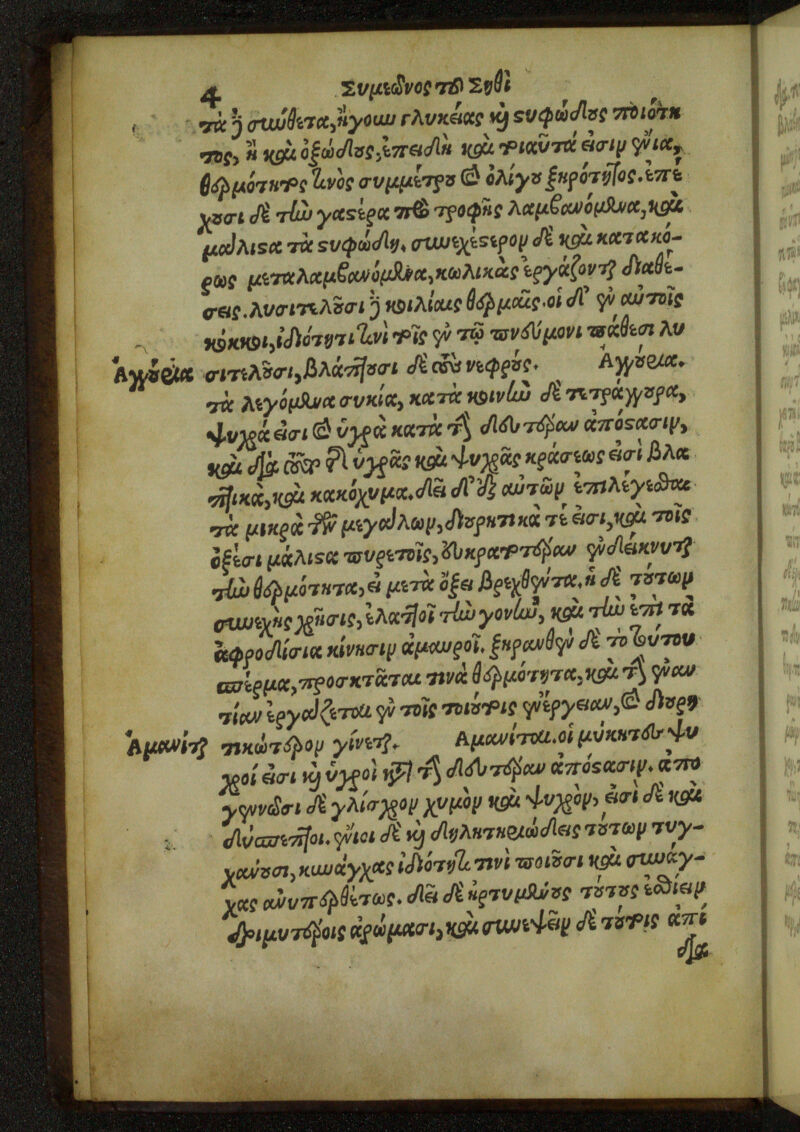 4 Συμεῶνος τοῦ Σηθὶ
τὰ δὲ σύνθετα, ἤγουν γλυκείας καὶ στυφώδους ποιότη
τος, ἢ καὶ ὀξώδους, ἐπειδὴ καὶ τοιαῦτά εἰσιν ἔνια,
θερμότητός τινος συμμέτρου καὶ ὀλίγου ξηρότητος. ἐπέ
χουσι δὲ τὴν γαστέρα πρὸ τροφῆς λαμβανόμενα, καὶ
μάλιστα τὰ στυφώδη. συνεχέστερον δὲ καὶ κατακό-
ρως μεταλαμβανόμενα, κωλικὰς ἐργάζονται διαθέ-
σεις. λυσιτελοῦσι δὲ κοιλίαις θερμαῖς. οἱ δ' ἐν αὐτοῖς
κόκκοι, ἰδιότητί τινι τοῖς ἐν τῷ πνεύμονι πάθεσι λυ
Ἀγγούρια σιτελοῦσι, βλάπτουσι δὲ τοὺς νεφρούς. Ἀγγούρια.
τὰ λεγόμενα συκία, κατὰ κοινὴν δὲ τετράγγουρα,
ψυχρά εἰσι καὶ ὑγρὰ κατὰ τὴν δευτέραν ἀπόστασιν,
καὶ διὰ ὑγρᾶς καὶ ψυχρᾶς κράσεως εἰσὶ βλα
πτικά, καὶ κακόχυμα. δεῖ δ' ἐξ αὐτῶν ἐπιλέγεσθαι
τὰ μικρὰ τῶν μεγάλων, διουρητικά τέ εἰσι, καὶ τοῖς
ὀξέσι μάλιστα πυρετοῖς, εὐκρατοτέραν ἐνδείκνυται
τὴν θερμότητα, εἰ μετὰ ὄξει βρεχθέντα. ἡ δὲ τούτων
συνεχὴς χρῆσις, ἐλαττοῖ τὴν γονήν, καὶ τὴν ἐπὶ τὰ
ἀφροδίσια κίνησιν ἀμαυροῖ. ξηρανθὲν δὲ τὸ τούτου
σπέρμα, προσκτᾶται τινὰ θερμότητα, καὶ τὴν ἐναν
τίαν ἐργάζεται ἐν τοῖς τοιούτοις ἐνέργειαν, καὶ διουρη
Ἀμανῖται τικώτερον γίνεται. Ἀμανῖται. οἱ μύκητες ψυ
χροί εἰσι καὶ ὑγροὶ κατὰ τὴν δευτέραν ἀπόστασιν. ἀπο
γεννῶσι δὲ γλίσχρον χυμὸν καὶ ψυχρόν, εἰσὶ δὲ καὶ
δύσπεπτοι. ἔνιοι δὲ καὶ δηλητηριώδεις τούτων τυγ-
χάνουσι, κυνάγχας ἰδιότητί τινι ποιοῦσι καὶ συνάγ-
χας ἀνυπερθέτως. δεῖ δὲ ἠρτυμένους τούτους ἐσθίειν
δριμυτέροις ἀρώμασι, καὶ συνεψεῖν δὲ τούτοις ἀπί
δια